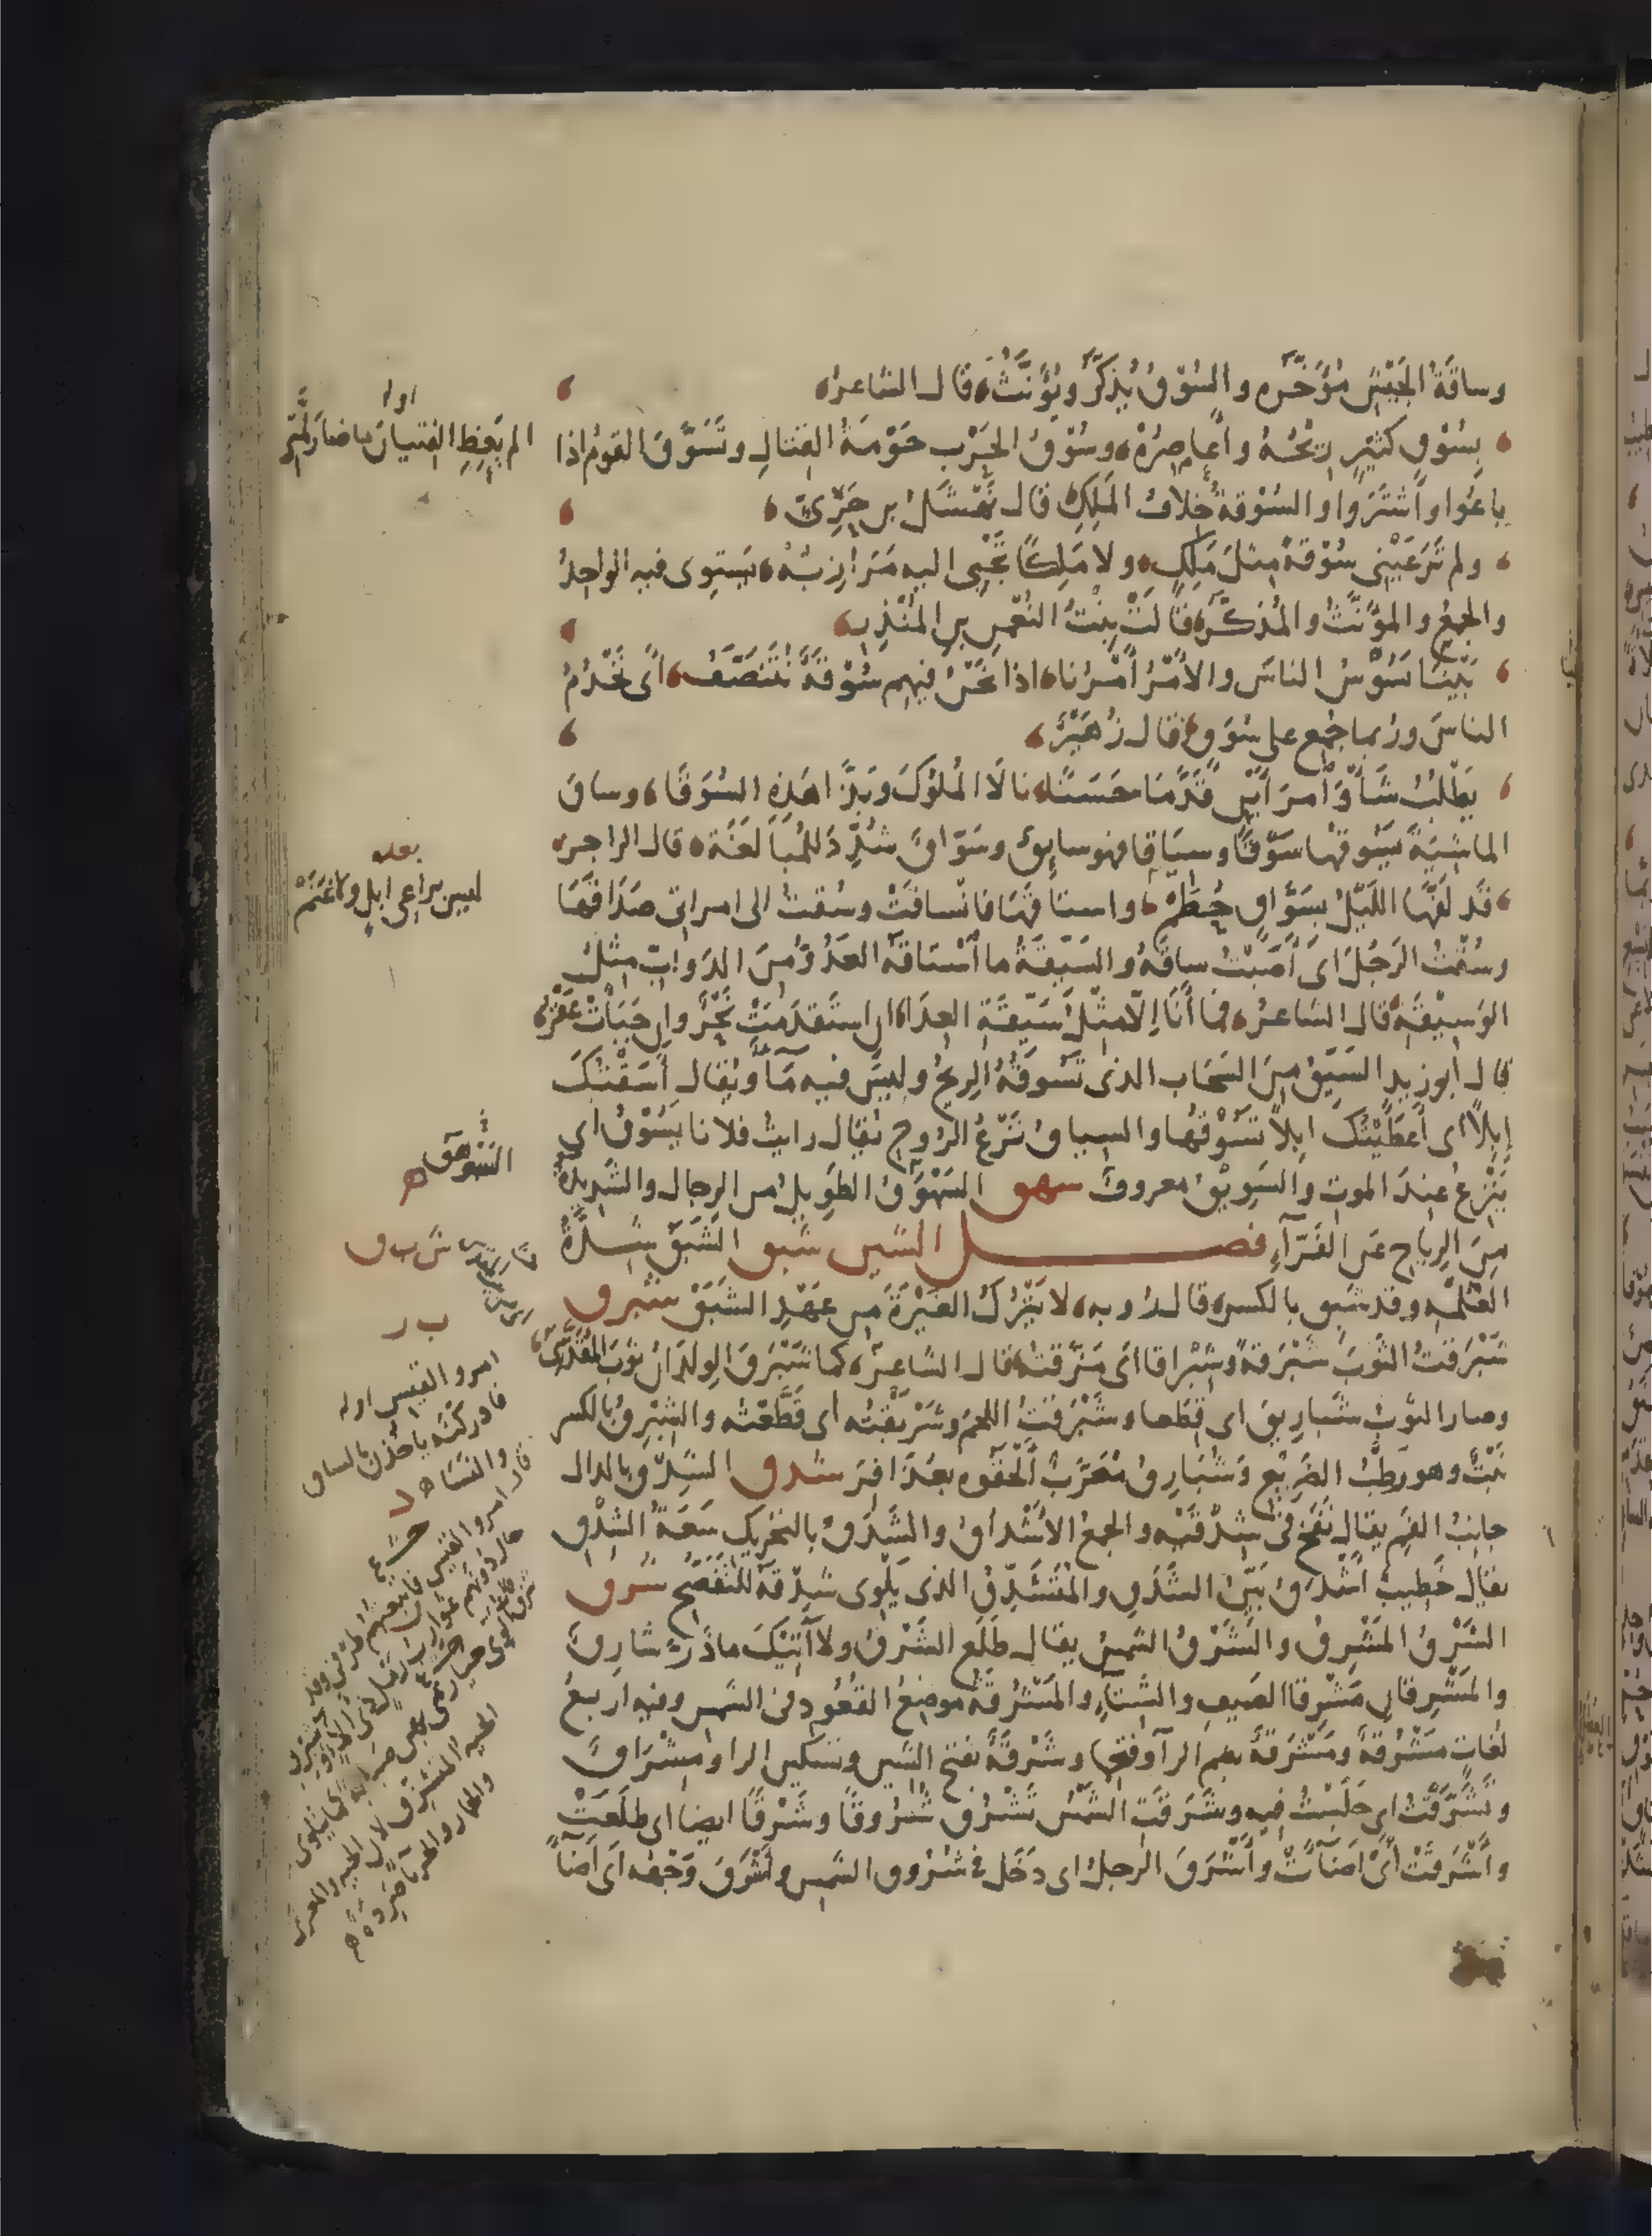 وساقَةُ الجَيْشِ مُؤَخَّره والسُوْقُ يُذكَّرُ ويُؤنَّثُ، قال الشاعرُ،
بِسُوْقٍ كثيرٍ رِيْحُهُ وأَعاصِرُهْ، وسُوْقُ الحَرْب حَوْمَةُ القتالِ وتَسَوَّقَ القومُ اذا
باعُوا واشتَرَوا والسُوْقةُ خِلافُ المَلِكِ قال نَهْشَلُ بن حَرِّيٍّ،
ولم تَرَعَيْنِي سُوْقةً مِثلَ مَلِكٍ، ولا مَلِكًا تَجْبِى اليه مَرَازِبُهْ، يَستوِى فيه الواحِدُ
والجمعُ والمؤنَّثُ والمُذكّرُ، قالَتْ بِنْتُ النُعْمٰنِ بنِ المُنْذِرِ،
بَيْنَا نَسُوْسُ الناسَ والأمْرُ أَمْرُنا، اذا نَحْنُ فيهم سُوْقَةٌ نَتَنَصَّفُ، أى نَخْدُمُ
الناسَ ورُبما جُمِع على سُوَقٍ، قال زُهَيْرٌ،
يَطْلُبُ شَأْوَ امرَأَيْنِ قَدَّمَا حَسَنًا، نالَا المُلُوْكَ وبَذَّا هٰذِهِ السُوَقَا، وساقَ
الماشِيَةَ يَسُوقُها سَوْقًا وسِيَاقا فهو سايِقٌ وسَوّاقٌ شُدِّدَ للمُبَالَغَة، قال الراجز،
قَد لَفَّها اللَيْلُ بسَوّاقٍ حُطَمْ، واستاقَهَا فانْساقَتْ وسُقتُ الى امراتى صَدَاقَهَا
وسُقْتُ الرَجُلَ اى أَصَبْتُ ساقَهُ والسَيِّقَةُ ما اسْتاقَهُ العَدُوُّ مِنَ الدَوابِّ مِثْلُ
الوَسِيْقَة، قال الشاعرُ، فما أَنَا إلّا مِثْلُ سَيِّقَةِ العِدَا، ان استَقدَمَتْ نَحْرٌ وان جَبَأَتْ عَقْرُ،
قال ابو زيد السَيِّقُ مِنَ السَحَاب الذى تَسُوقُهُ الرِيحُ وليسَ فيه مَآءٌ ويُقال أَسَقْتُكَ
إبِلًا اى أَعْطَيْتُكَ ابِلًا تَسُوْقُها والسياقُ نَزْعُ الرُوحِ يُقال رايتُ فلانا يَسُوقُ اى
يَنْزِعُ عِندَ الموت والسَوِيْقُ معروفٌ سهق السَهْوَقُ الطَوِيلُ من الرجال والشَدِيدَةُ
مِنَ الرِياحِ عَنِ الفَرّآءِ فصـــل الشين شبق الشَبَقُ شِدَّةُ
الغُلْمَة وقد شَبِقَ بالكسر، قال رُوبه، لا يَتْرُكُ الغَيْرَةَ مِن عَهْدِ الشَبَقْ شبرق
شَبْرَقتُ الثَوبَ شَبْرَقةً وشِبْراقا اى مَزَّقتُهُ، قال الشاعرُ، كما شَبْرَقَ الوِلدَانُ ثوبَ المُقَدَّسِ،
وصار الثوبُ شَبارِيقَ اى قِطَعا وشَبْرَقتُ اللحمَ وشَرْبَقْتُه اى قَطَّعْتُه والشِبْرِقُ بالكسر
نَبْتٌ وهو رَطْبُ الضَرِيْعِ وشُبَارِقٌ مُعَرَّبٌ أَلْحَقُوه بعُذَافِرَ شدق الشِدْقُ بالدال
جانِبُ الفَمِ يقال نَفَخَ فى شِدْقَيْه والجمع الأشْداقُ والشَدَقُ بالتحريك سَعَةُ الشِدْقِ
يقال خَطِيبٌ أَشْدَقُ بَيِّنُ الشَدَقِ والمُتَشَدِّقُ الذى يَلْوِى شِدْقَهُ للتَفَصُّحِ شرق
الشَرْقُ المَشْرِقُ والشَرْقُ الشمسُ يقال طَلَع الشَرْقُ ولا آتِيْكَ ما ذَرَّ شارِقٌ
والمَشْرِقانِ مَشْرِقا الصَيفِ والشِتآءِ والمَشْرُقةُ موضِعُ القُعُودِ فى الشمس وفيه اربعُ
لُغاتٍ مَشْرُقةٌ ومَشْرَقةٌ بضم الرآ وفتحِها وشَرْقَةٌ بفتح الشين وتسكين الرا ومِشْرَاقٌ
وتَشَرَّقْتُ اى جَلَسْتُ فيه وشَرَقَتِ الشَمْسُ تَشْرُقُ شُرُوقًا وشَرْقًا ايضا اى طَلَعَتْ
وأَشْرَقَتْ أَىْ اضآءَتْ وأَشْرَقَ الرجلُ اى دَخَل فى شُرُوق الشمس وأشْرَقَ وَجْهُه اى أَضَآءَ
اوله
الم يَعِظِ الفتيانَ ما صار لِمَّتِى
بعده
ليس براعى ابلٍ ولا غَنَمْ
السَوهَق
ش ب ق
ب ر
امرو القيس اوله
فادركنَه ياخُذن بالساق
والنَسَا
قال امرو القيس